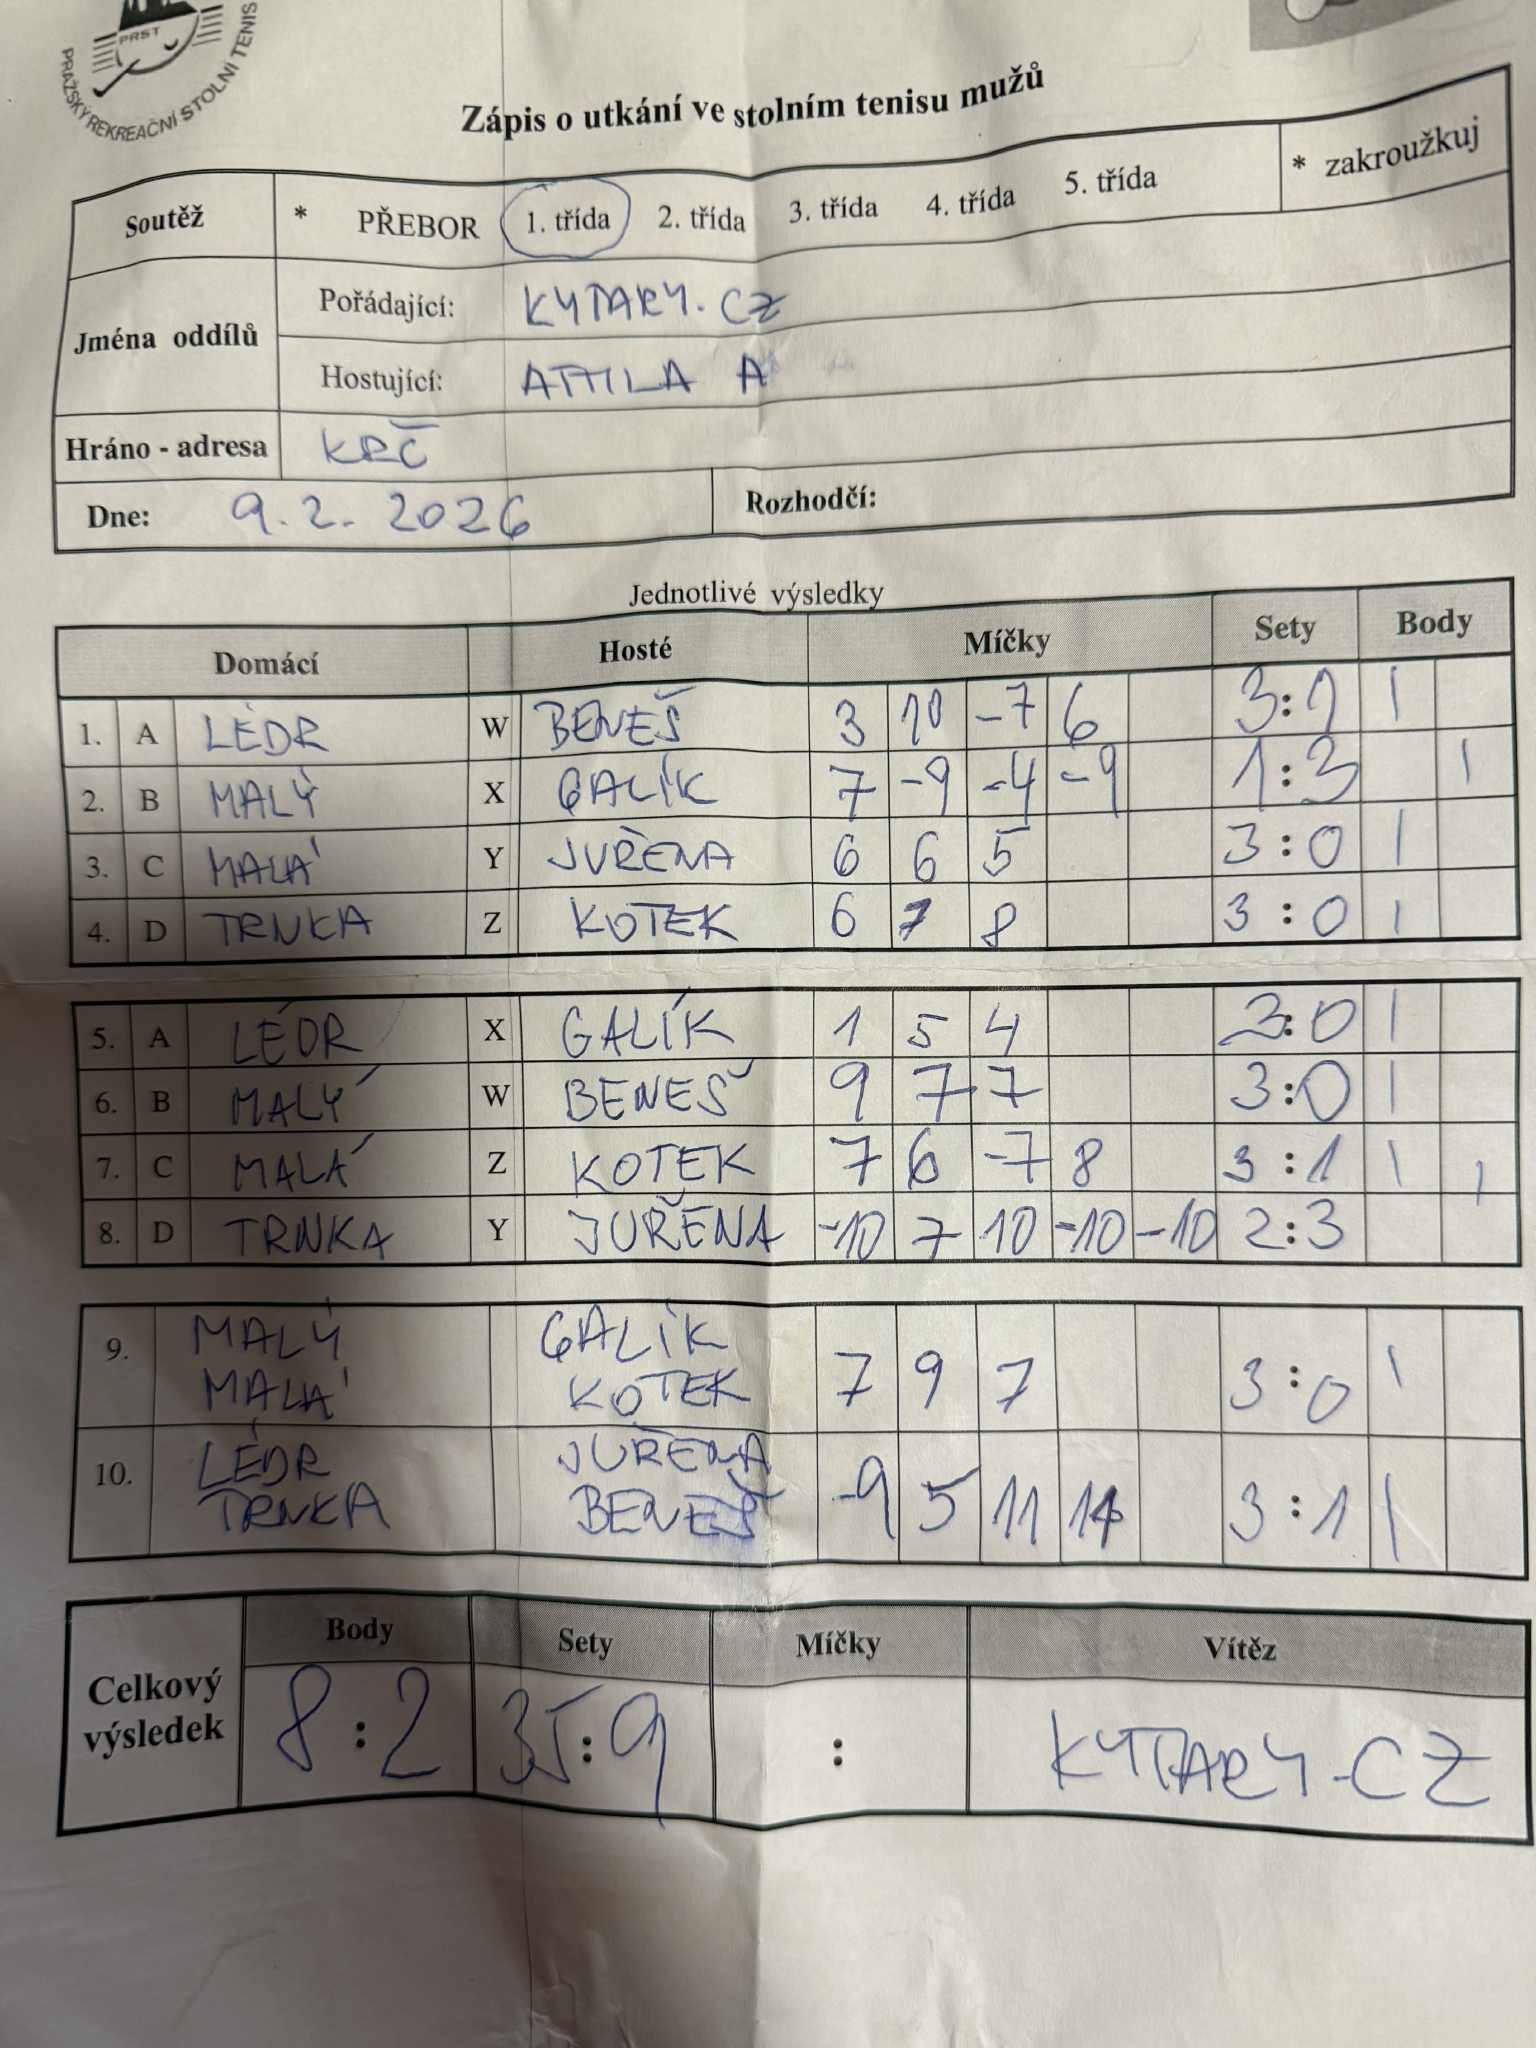 PRST
PRAŽSKÝ REKREAČNÍ STOLNÍ TENIS
Zápis o utkání ve stolním tenisu mužů
Soutěž * PŘEBOR 1. třída 2. třída 3. třída 4. třída 5. třída * zakroužkuj
Jména oddílů
Pořádající: KYTARY.CZ
Hostující: ATTILA A
Hráno - adresa KRČ
Dne: 9.2.2026 Rozhodčí:
Jednotlivé výsledky
Domácí Hosté Míčky Sety Body
1. A LÉDR W BENEŠ 3 10 -7 6 3:1 1
2. B MALÝ X GALÍK 7 -9 -4 -9 1:3 1
3. C MALÁ Y JUŘENA 6 6 5 3:0 1
4. D TRNKA Z KOTEK 6 7 8 3:0 1
5. A LÉDR X GALÍK 1 5 4 3:0 1
6. B MALÝ W BENEŠ 9 7 7 3:0 1
7. C MALÁ Z KOTEK 7 6 -7 8 3:1 1 1
8. D TRNKA Y JUŘENA -10 7 10 -10 -10 2:3
9. MALÝ GALÍK
MALÁ KOTEK 7 9 7 3:0 1
10. LÉDR JUŘENA
TRNKA BENEŠ -9 5 11 14 3:1 1
Body Sety Míčky Vítěz
Celkový výsledek 8:2 35:9 : KYTARY.CZ